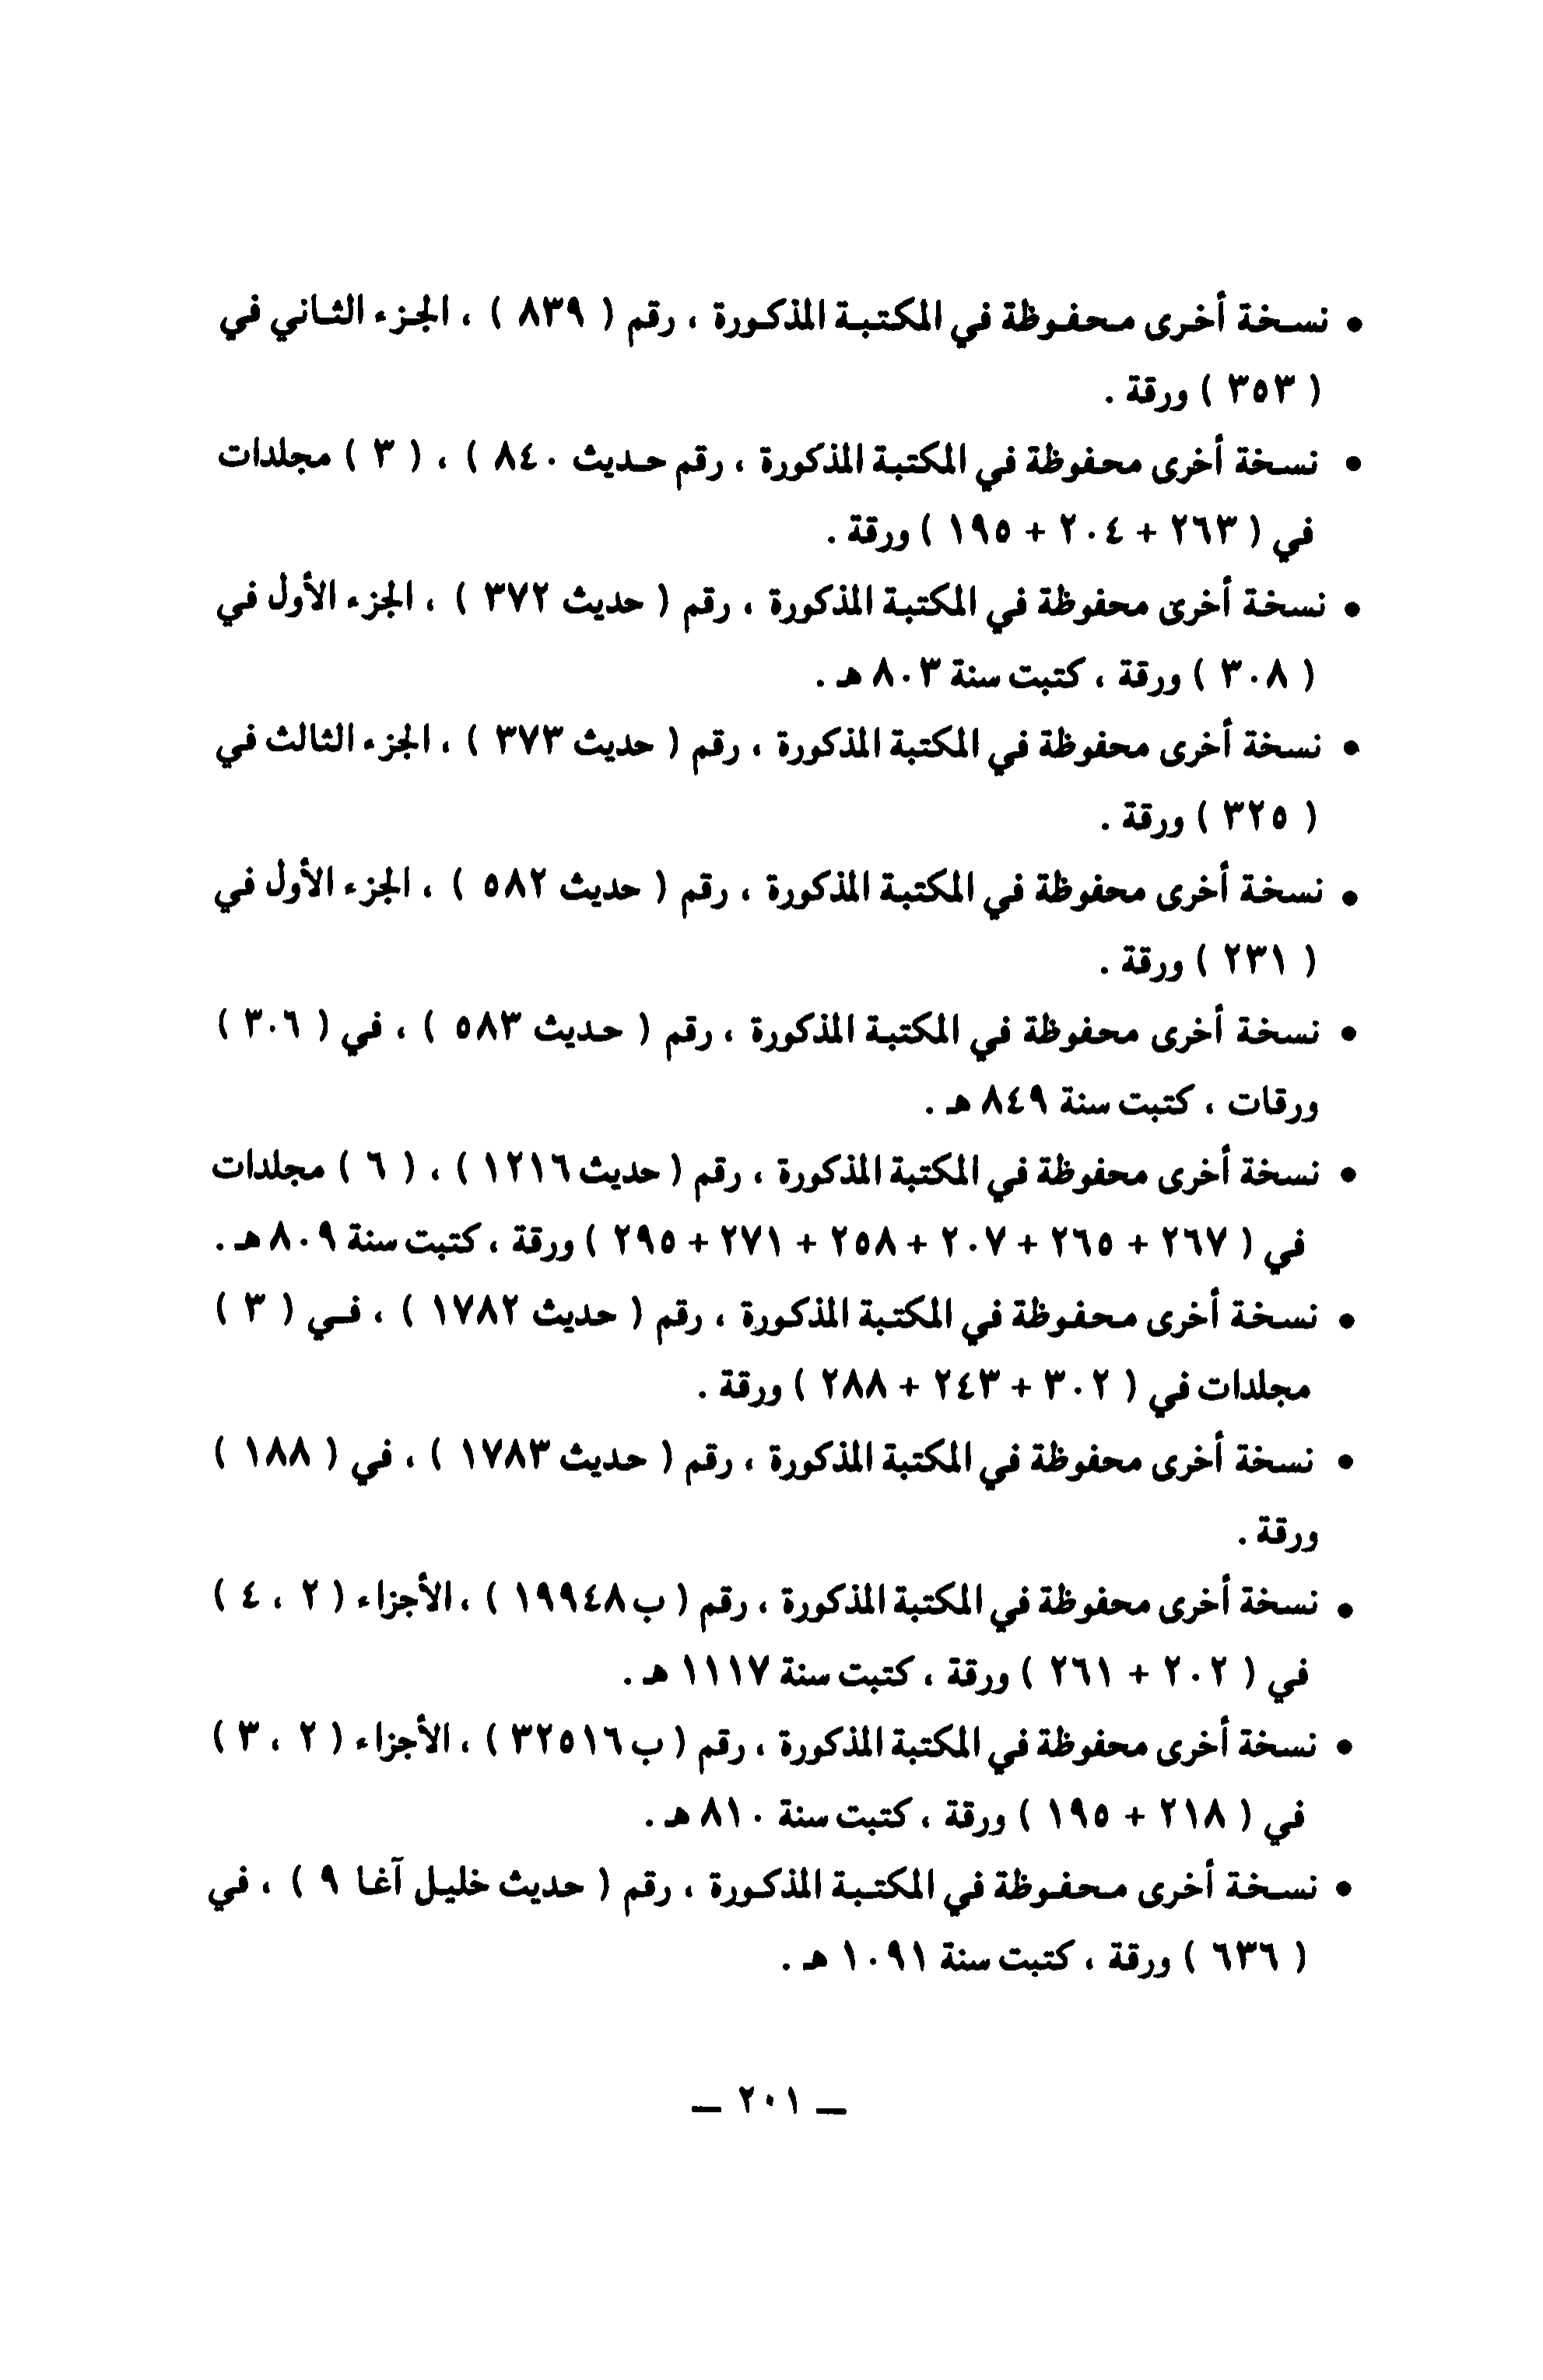 • نسخة أخرى محفوظة في المكتبة المذكورة ، رقم ( ٨٣٩ ) ، الجزء الثاني في
( ٣٥٣ ) ورقة .
• نسخة أخرى محفوظة في المكتبة المذكورة ، رقم حديث ٨٤٠ ) ، ( ٣ ) مجلدات
في ( ٢٦٣ + ٢٠٤ + ١٩٥ ) ورقة .
• نسخة أخرى محفوظة في المكتبة المذكورة ، رقم ( حديث ٣٧٢ ) ، الجزء الأول في
( ٣٠٨ ) ورقة ، كتبت سنة ٨٠٣ هـ .
• نسخة أخرى محفوظة في المكتبة المذكورة ، رقم ( حديث ٣٧٣ ) ، الجزء الثالث في
( ٣٢٥ ) ورقة .
• نسخة أخرى محفوظة في المكتبة المذكورة ، رقم ( حديث ٥٨٢ ) ، الجزء الأول في
( ٢٣١ ) ورقة .
• نسخة أخرى محفوظة في المكتبة المذكورة ، رقم ( حديث ٥٨٣ ) ، في ( ٣٠٦ )
ورقات ، كتبت سنة ٨٤٩ هـ .
• نسخة أخرى محفوظة في المكتبة المذكورة ، رقم ( حديث ١٢١٦ ) ، ( ٦ ) مجلدات
في ( ٢٦٧ + ٢٦٥ + ٢٠٧ + ٢٥٨ + ٢٧١ + ٢٩٥ ) ورقة ، كتبت سنة ٨٠٩ هـ .
• نسخة أخرى محفوظة في المكتبة المذكورة ، رقم ( حديث ١٧٨٢ ) ، في ( ٣ )
مجلدات في ( ٣٠٢ + ٢٤٣ + ٢٨٨ ) ورقة .
• نسخة أخرى محفوظة في المكتبة المذكورة ، رقم ( حديث ١٧٨٣ ) ، في ( ١٨٨ )
ورقة .
• نسخة أخرى محفوظة في المكتبة المذكورة ، رقم ( ب ١٩٩٤٨ ) ، الأجزاء ( ٢ ، ٤ )
في ( ٢٠٢ + ٢٦١ ) ورقة ، كتبت سنة ١١١٧ هـ .
• نسخة أخرى محفوظة في المكتبة المذكورة ، رقم ( ب ٣٢٥١٦ ) ، الأجزاء ( ٢ ، ٣ )
في ( ٢١٨ + ١٩٥ ) ورقة ، كتبت سنة ٨١٠ هـ .
• نسخة أخرى محفوظة في المكتبة المذكورة ، رقم ( حديث خليل آغا ٩ ) ، في
( ٦٣٦ ) ورقة ، كتبت سنة ١٠٩١ هـ .
ـ ٢٠١ ـ